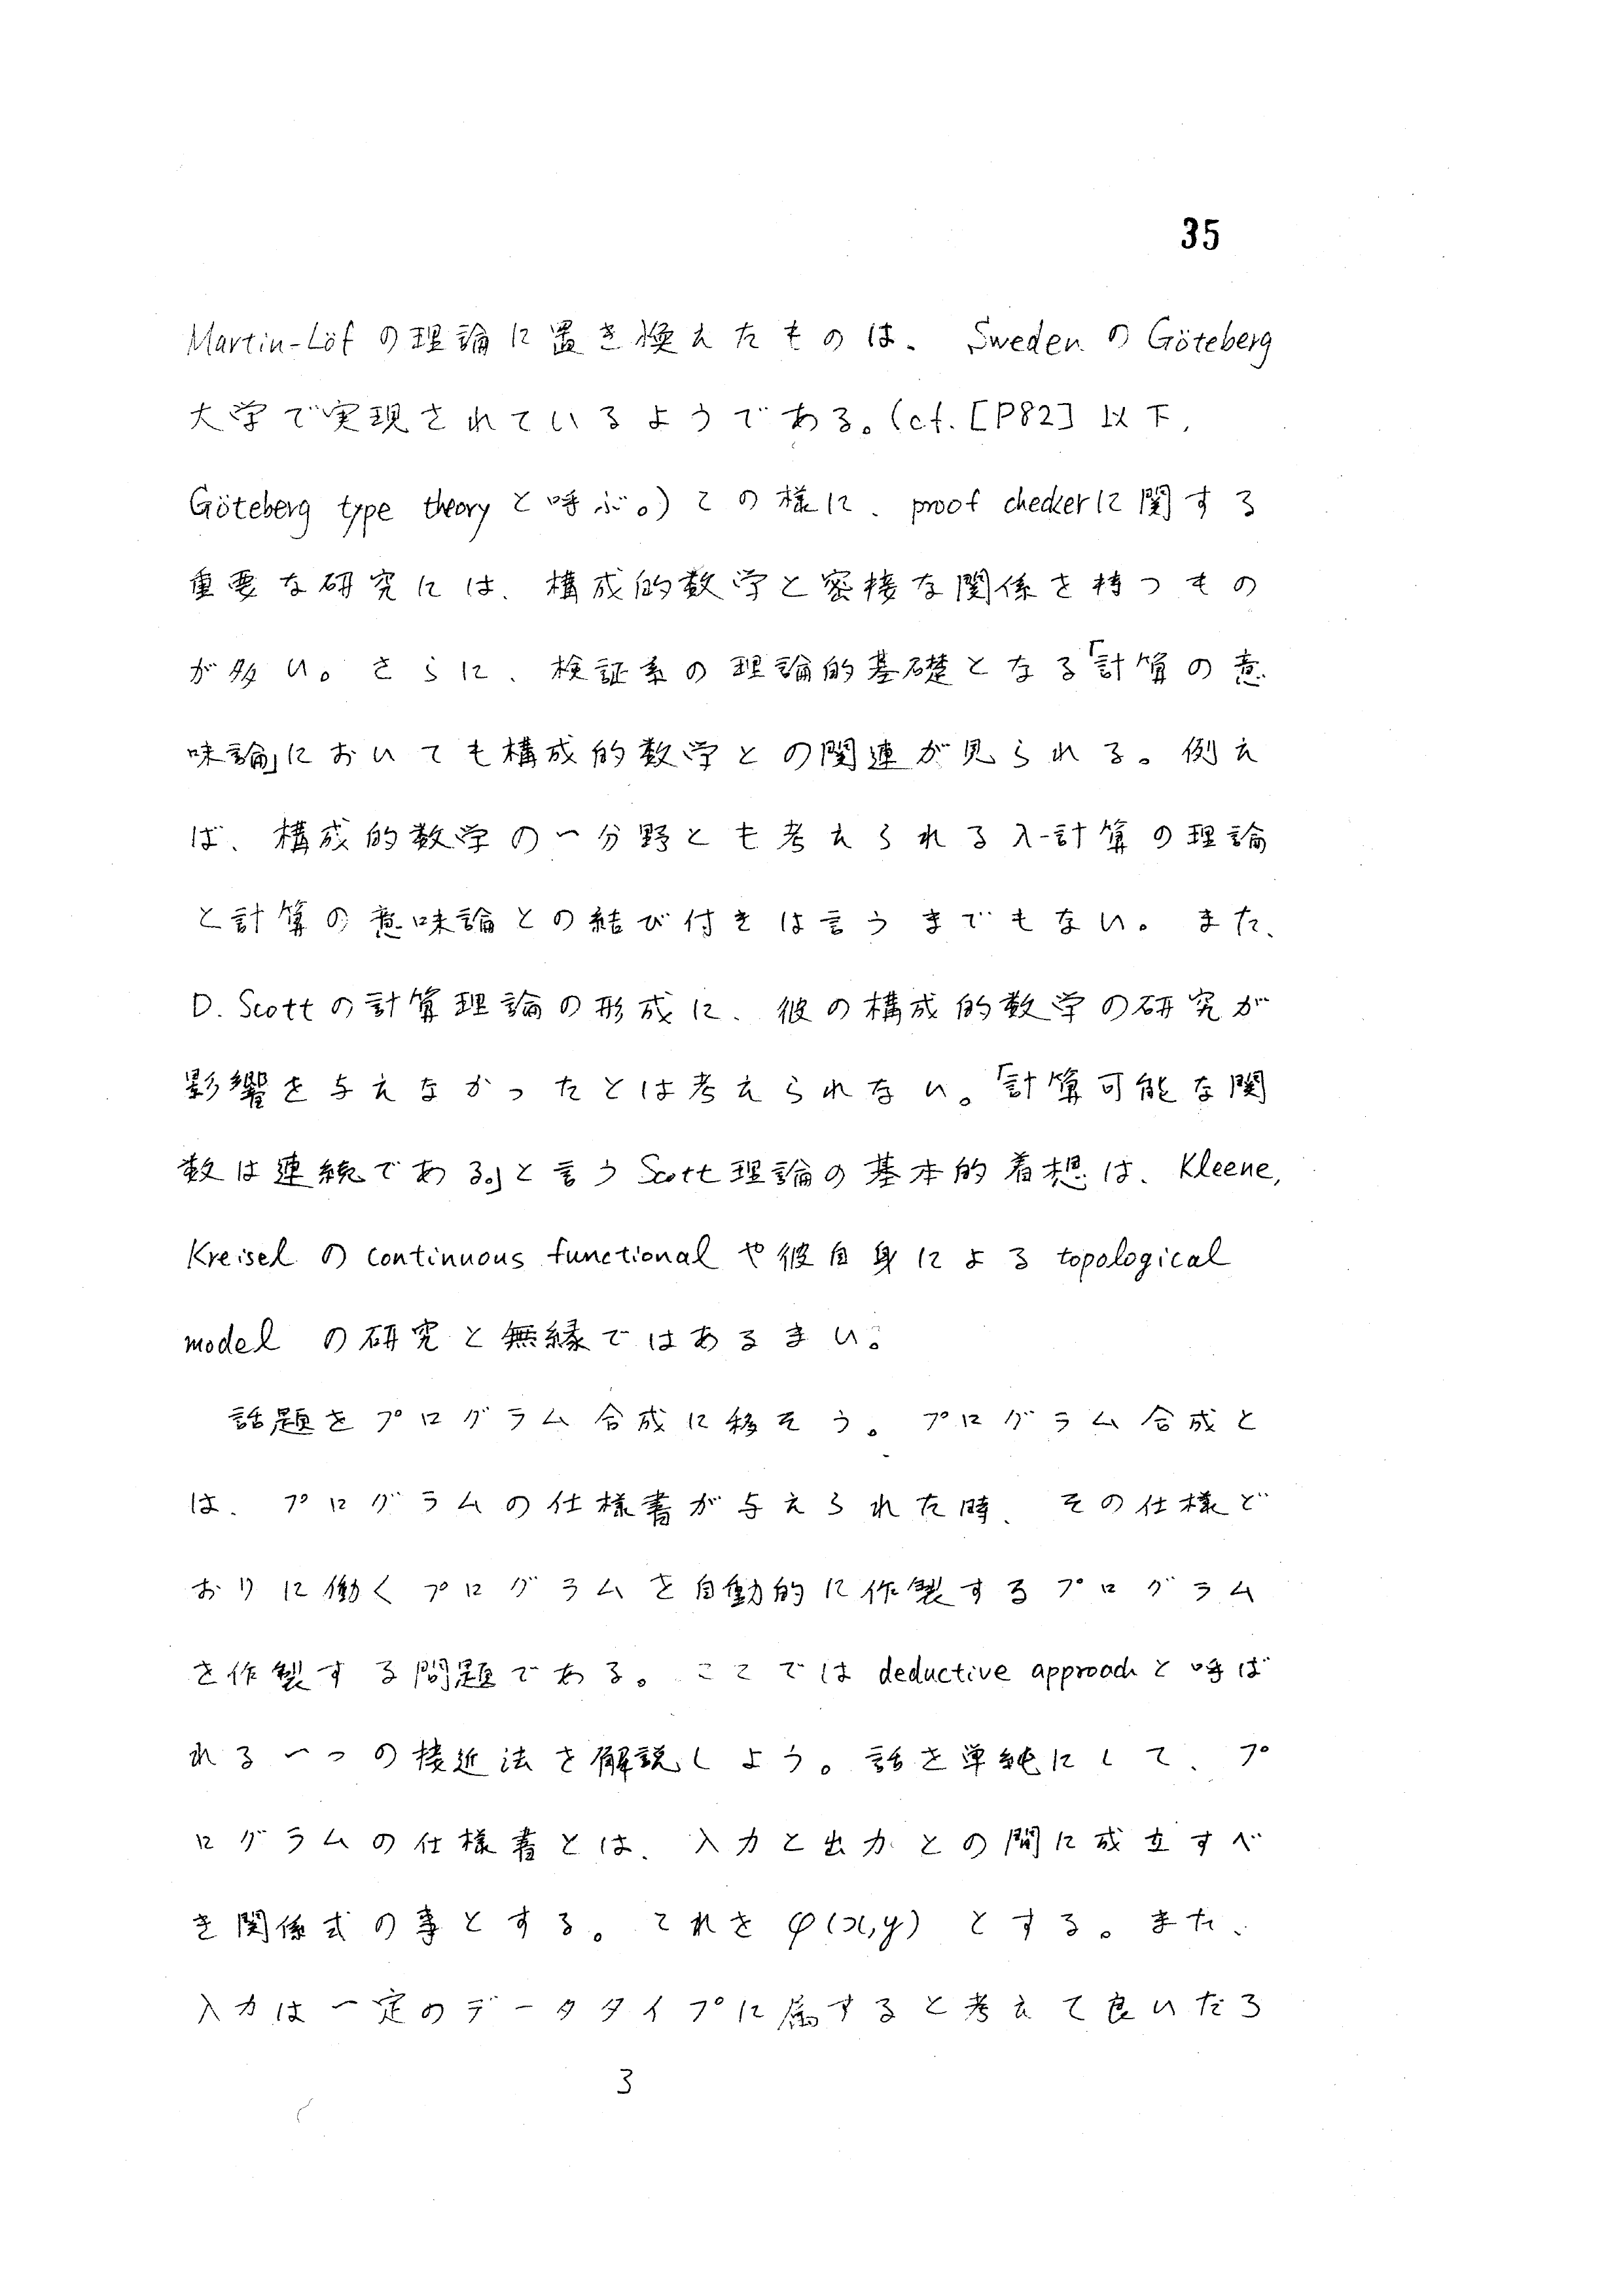 35
Martin-Löf の理論に置き換えたものは、Sweden の Göteberg
大学で実現されているようである。(cf. [P82] 以下、
Göteberg type theory と呼ぶ。) この様に、proof checker に関する
重要な研究には、構成的数学と密接な関係を持つもの
が多い。さらに、検証系の理論的基礎となる「計算の意
味論」においても構成的数学との関連が見られる。例え
ば、構成的数学の一分野とも考えられる λ-計算の理論
と計算の意味論との結び付きは言うまでもない。また、
D. Scott の計算理論の形成に、彼の構成的数学の研究が
影響を与えなかったとは考えられない。「計算可能な関
数は連続である。」と言う Scott 理論の基本的着想は、Kleene,
Kreisel の continuous functional や彼自身による topological
model の研究と無縁ではあるまい。
話題をプログラム合成に移そう。プログラム合成と
は、プログラムの仕様書が与えられた時、その仕様ど
おりに働くプログラムを自動的に作製するプログラム
を作製する問題である。ここでは deductive approach と呼ば
れる一つの接近法を解説しよう。話を単純にして、プ
ログラムの仕様書とは、入力と出力との間に成立すべ
き関係式の事とする。これを φ(x,y) とする。また、
入力は一定のデータタイプに属すると考えて良いだろ
3